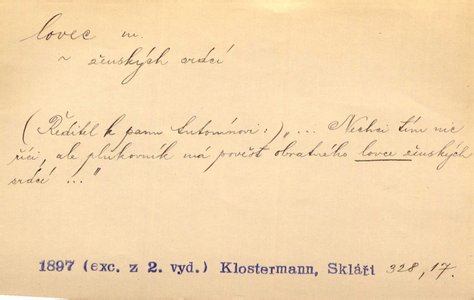 lovec m.
~ ženských srdcí
(Ředitel k panu Antonínovi:) „... Nechci tím nic
říci, ale plukovník má pověst obratného lovce ženských
srdcí ..."
1897 (exc. z 2. vyd.) Klostermann, Skláři 328,17.